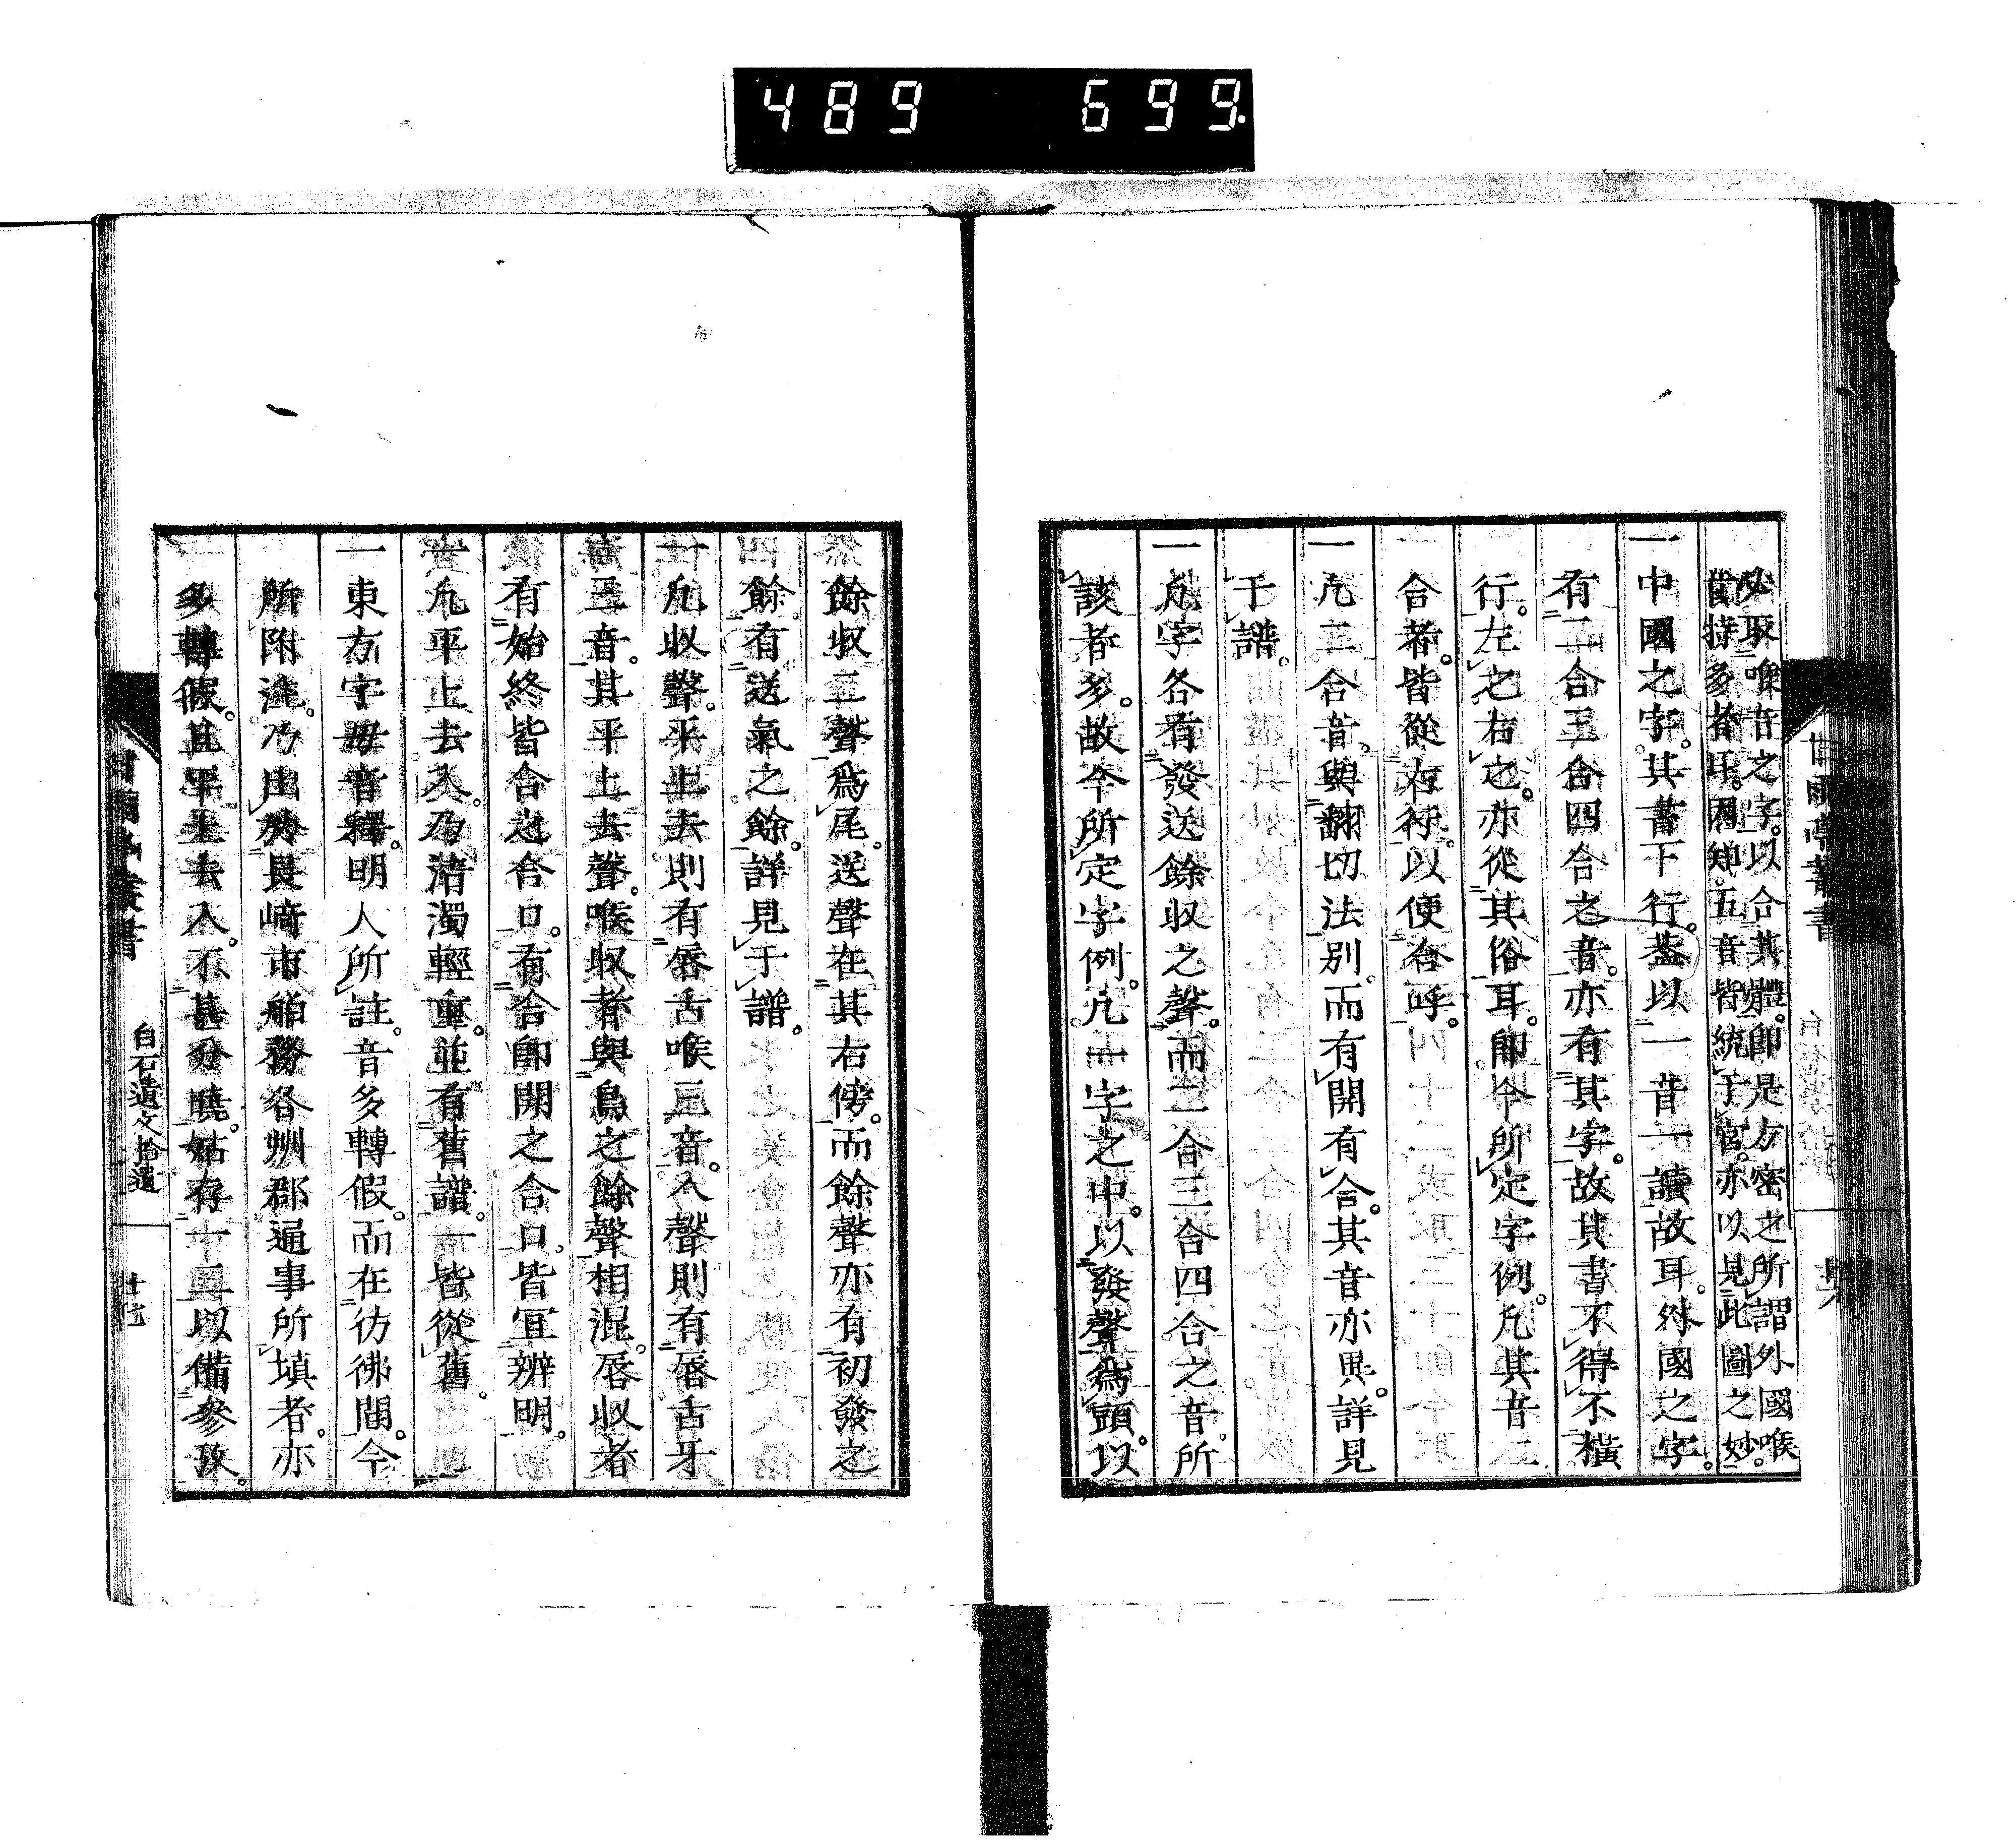 489 699.
必取喉音之字。以合其體。即是方密之所謂外國喉
音持多者耳。因知。五音皆統于官。亦以見此圖之妙。
一中國之字。其書下行。蓋以一音一讀故耳。外國之字。
有二合三合四合之音。亦有其字。故其書不得不橫
行。左之右之。亦從其俗耳。即今所定字例。凡其音二
合者。皆從右行。以便合呼。
一凡二合音。與翻切法別。而有開有合。其音亦異。詳見
于譜。
一凡字各有發送餘収之聲。而二合三合四合之音所
該者多。故今所定字例。凡一字之中。以發聲爲頭。以
餘収二聲爲尾。送聲在其右傍。而餘聲亦有初發之
餘。有送氣之餘。詳見于譜。
一凡収聲。平上去則有唇舌喉三音。入聲則有唇舌牙
三音。其平上去聲。喉収者與鳥之餘聲相混。唇収者
有始終皆合之合口。有合即開之合口。皆宜辨明。
凡平上去入。乃淸濁輕重。並有舊譜。一皆從舊。
一東方字母音釋。明人所註。音多轉假。而在彷彿間。今
所附注。乃出於長崎市舶務各州郡通事所塡者。亦
多轉假。且平上去入。不甚分曉。姑存十一以備參攷。
甘雨亭叢書
白石遺文拾遺